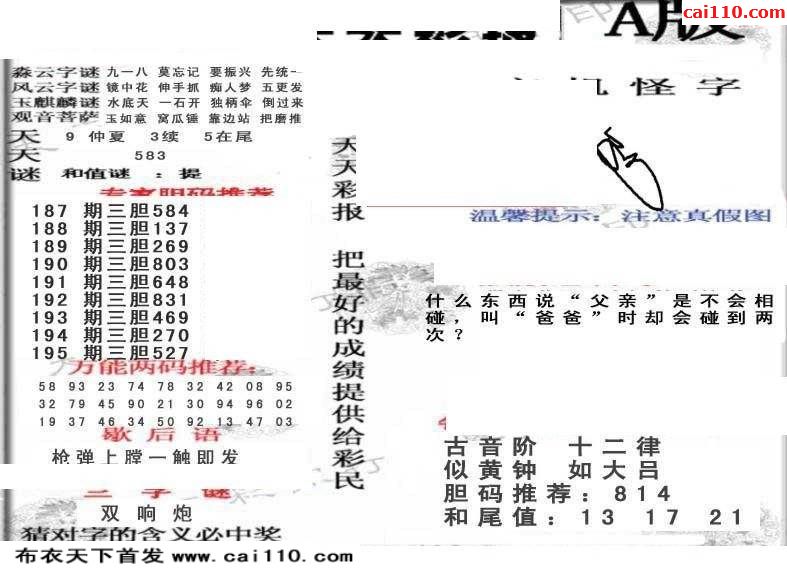 cai110.com
A版
怪字
淼云字谜 九一八 莫忘记 要振兴 先统一
风云字谜 镜中花 伸手抓 痴人梦 五更发
玉麒麟谜 水底天 一石开 独柄伞 倒过来
观音菩萨 玉如意 窝瓜锤 靠边站 把磨推
天 9 仲夏 3续 5在尾
天 583
谜 和值谜 : 提
专家胆码推荐
187 期三胆584
188 期三胆137
189 期三胆269
190 期三胆803
191 期三胆648
192 期三胆831
193 期三胆469
194 期三胆270
195 期三胆527
万能两码推荐:
58 93 23 74 78 32 42 08 95
32 79 45 90 21 30 94 96 02
19 37 46 34 50 92 13 47 03
歇后语
枪弹上膛一触即发
三字谜
双响炮
猜对字的含义必中奖
布衣天下首发 www.cai110.com
天天彩报 把最好的成绩提供给彩民
温馨提示: 注意真假图
什么东西说“父亲”是不会相
碰，叫“爸爸”时却会碰到两
次？
古音阶 十二律
似黄钟 如大吕
胆码推荐: 814
和尾值: 13 17 21